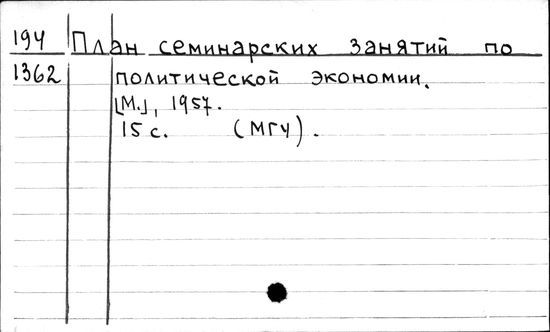 194 План семинарских занятий по
1362 политической экономии.
[М.], 1957.
15 с. (МГУ).